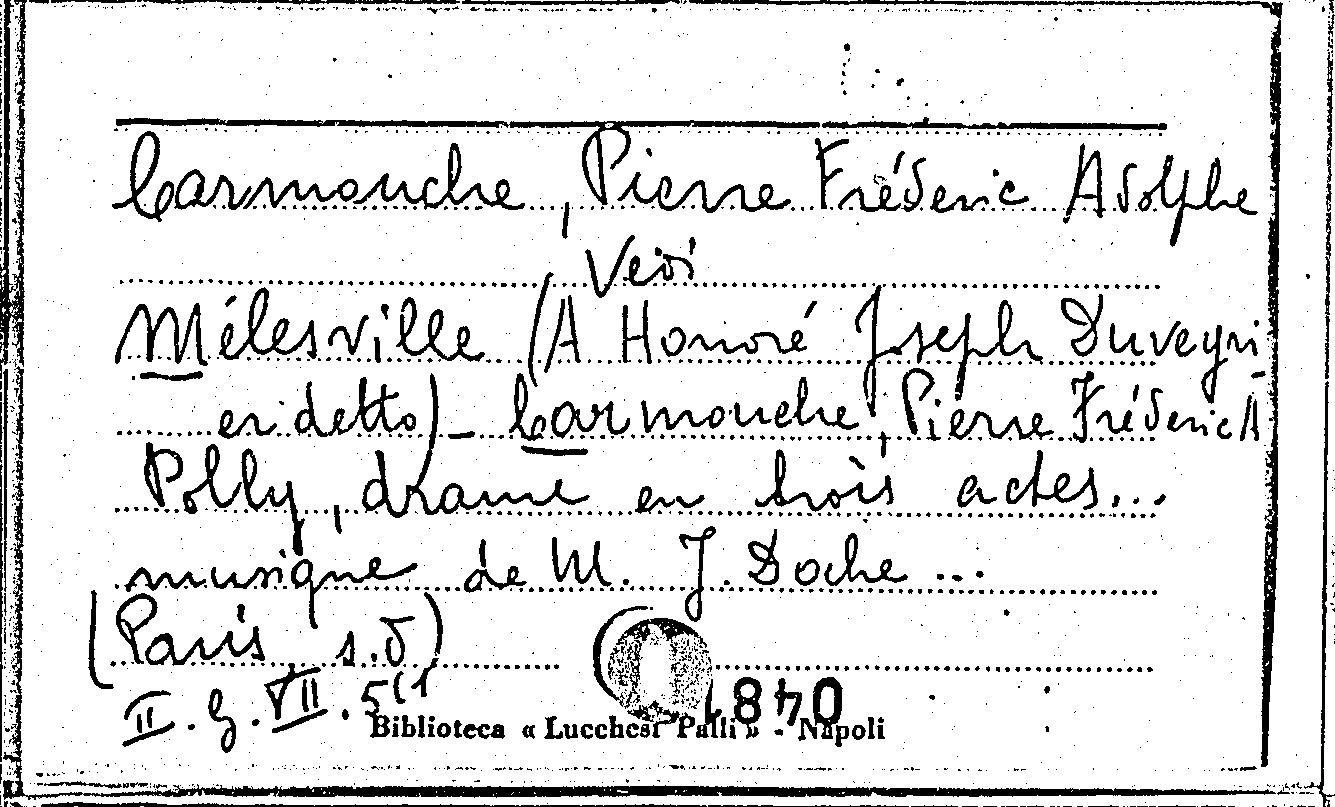 Carmouche, Pierre Fréderic Adolphe
Vedi
Mélesville (A Honoré Joseph Duveyri-
er detto) - Carmouche, Pierre Fréderic A
Polly, drame en trois actes...
musique de M. J. Doche ...
(Paris, s.d)
II. G. VII. 5(1
Biblioteca « Lucchesi Palli » - Napoli